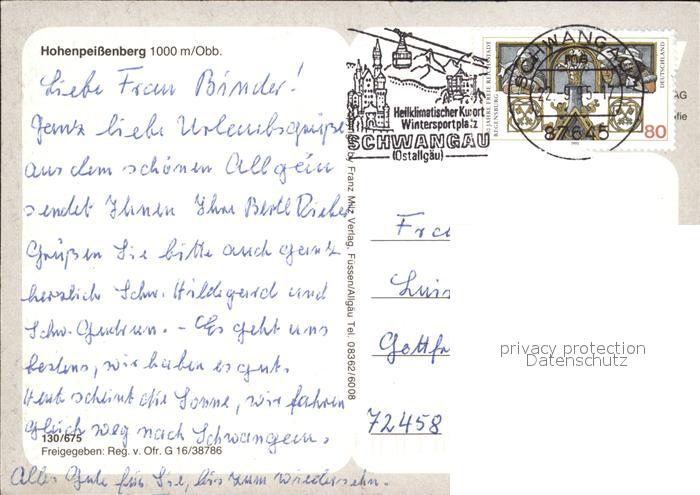 Hohenpeißenberg 1000 m/Obb.
Liebe Frau Binder!
Ganz liebe Urlaubsgrüße
aus dem schönen Allgäu
sendet Ihnen Ihre Bertl
Grüßen Sie bitte auch ganz
herzlich Schw. Hildegard und
Schw. Gudrun. - Es geht uns
bestens, wir haben es gut.
Heut scheint die Sonne, wir fahren
gleich weg nach Schwangau.
130/675
Freigegeben: Reg. v. Ofr. G 16/38786
Alles Gute für Sie, bis zum Wiedersehn.
by Franz Milz Verlag, Füssen/Allgäu Tel. 08362/6008
Heilklimatischer Kurort
Wintersportplatz
SCHWANGAU
(Ostallgäu)
SCHWANGAU
87645
REGENSBURG
DEUTSCHLAND
80
AG
fie
Fra
Luis
Gottfr
72458
privacy protection
Datenschutz